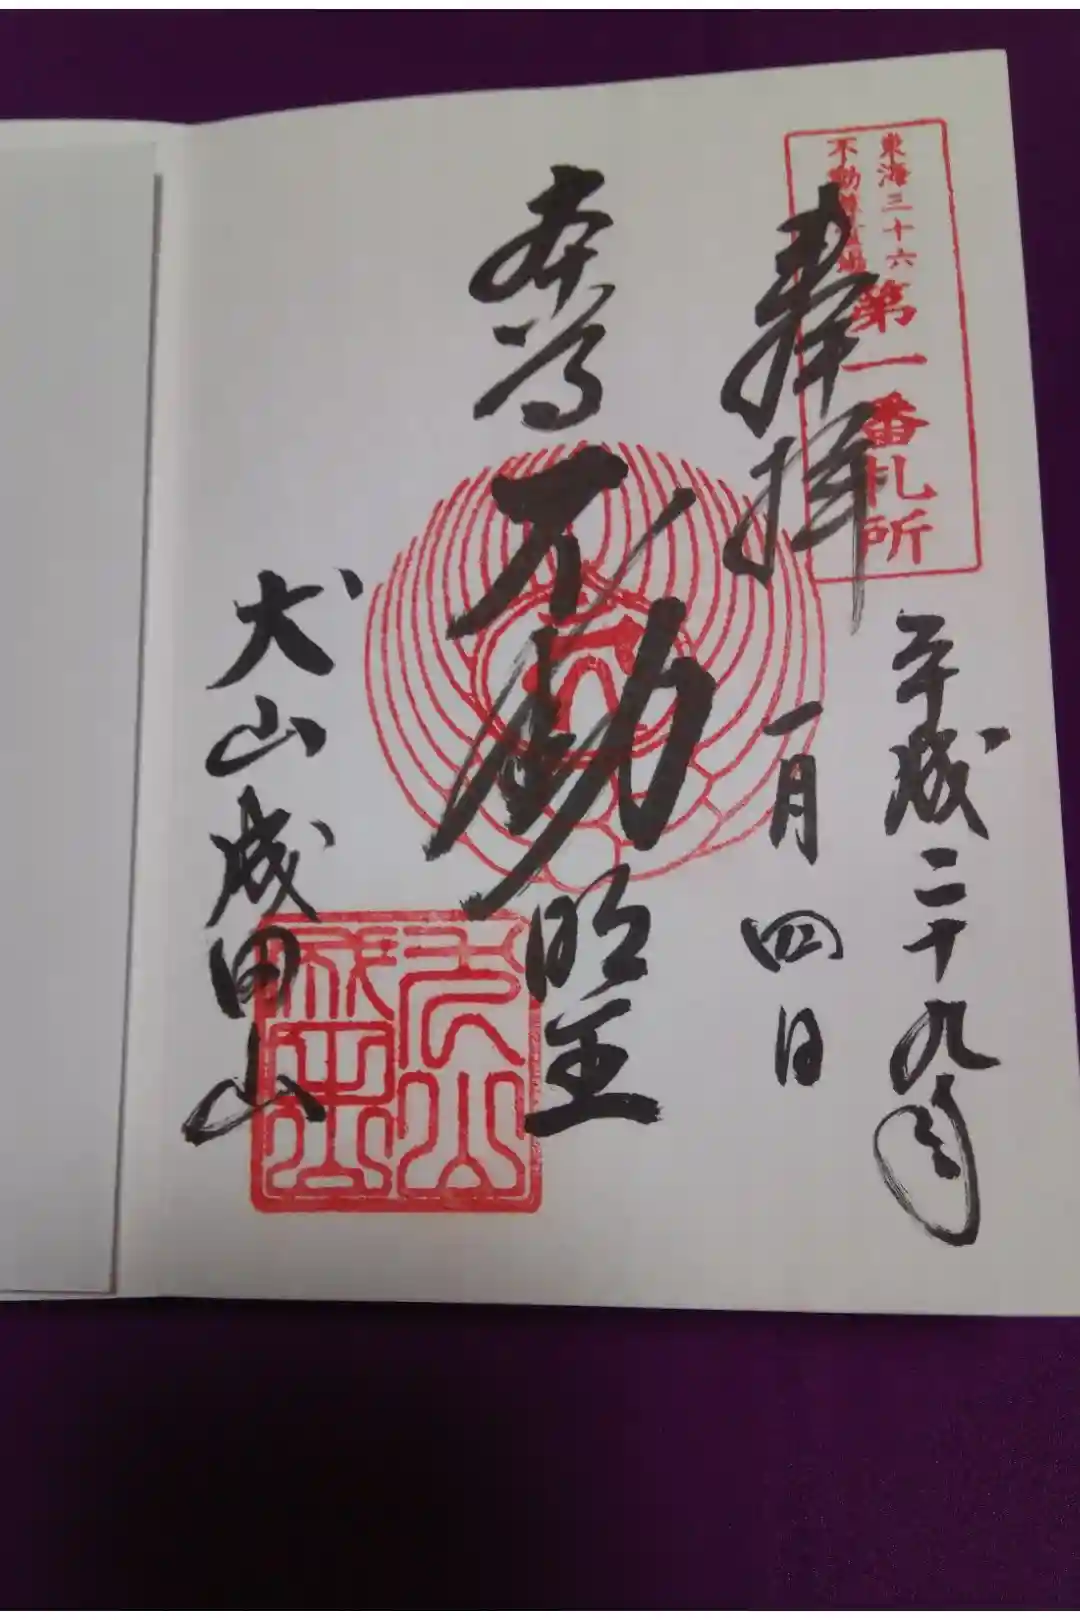 東海三十六
不動尊霊場
第一番札所
奉拝
平成二十九年
一月四日
本尊
不動明王
犬山成田山